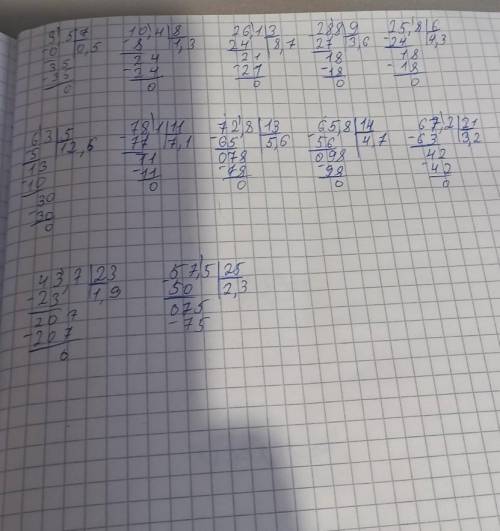 3,5 7 10,4 8 26,1 3 28 8 9 25,8 6
-0 0,5 -8 1,3 -24 8,7 -27 3,6 -24 4,3
35 24 21 18 18
-35 -24 -21 -18 -18
0 0 0 0 0
63 5 78,1 11 72,8 13 65,8 14 67,2 21
-5 12,6 -77 7,1 -65 5,6 -56 4,7 -63 3,2
13 11 078 098 42
-10 -11 -78 -98 -42
30 0 0 0 0
-30
0
43,7 23 57,5 25
-23 1,9 -50 2,3
207 075
-207 -75
0